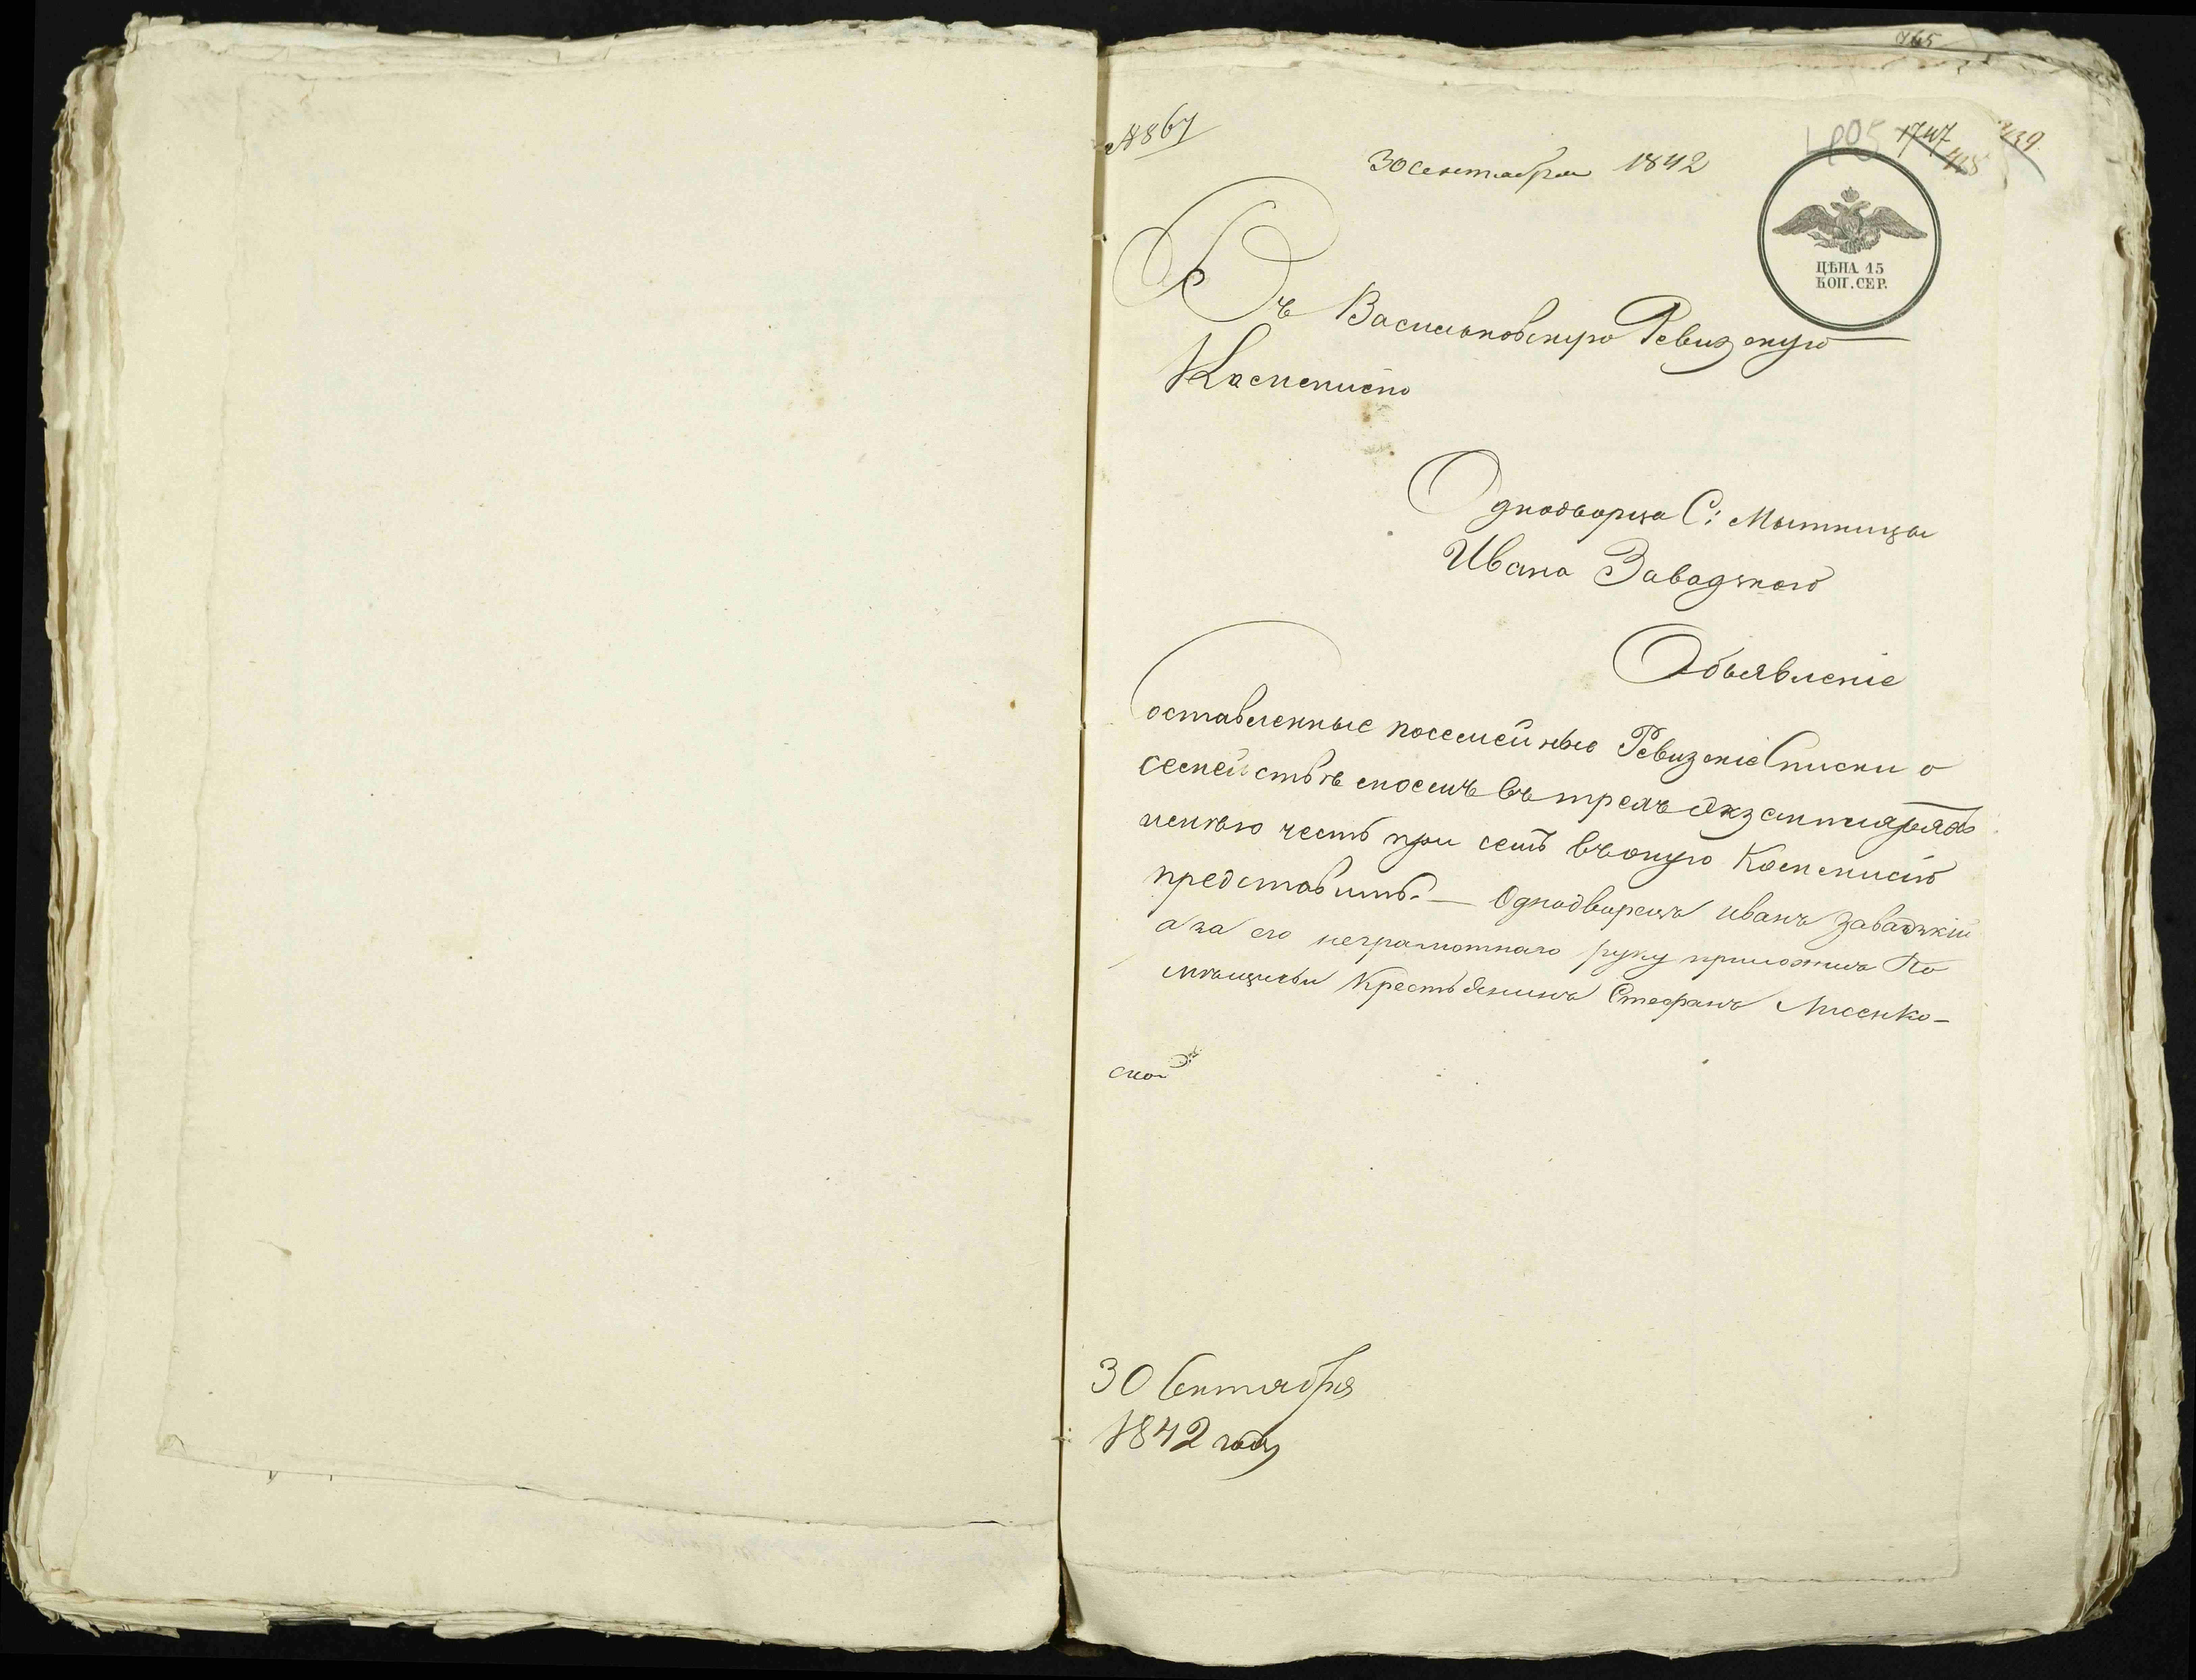 765
№867
30 Сентября 1842
1747
439
ЦѢНА 15
КОП. СЕР.
Въ Васильковскую Ревизскую
Комисию
Однодворца С: Мытницы
Ивана Завадзкого
Объявленіе
Составленные посемейные Ревизскіе Списки о
семействѣ моемъ въ трехъ экземплярахъ
имѣю честь при семъ въ оную Комисию
представить. — Однодворецъ иванъ Завадзкій
а за его неграмотнаго руку приложилъ По
мѣщичьи Крестьянинъ Стефанъ Лисенко —
30 Сентября
1842 года